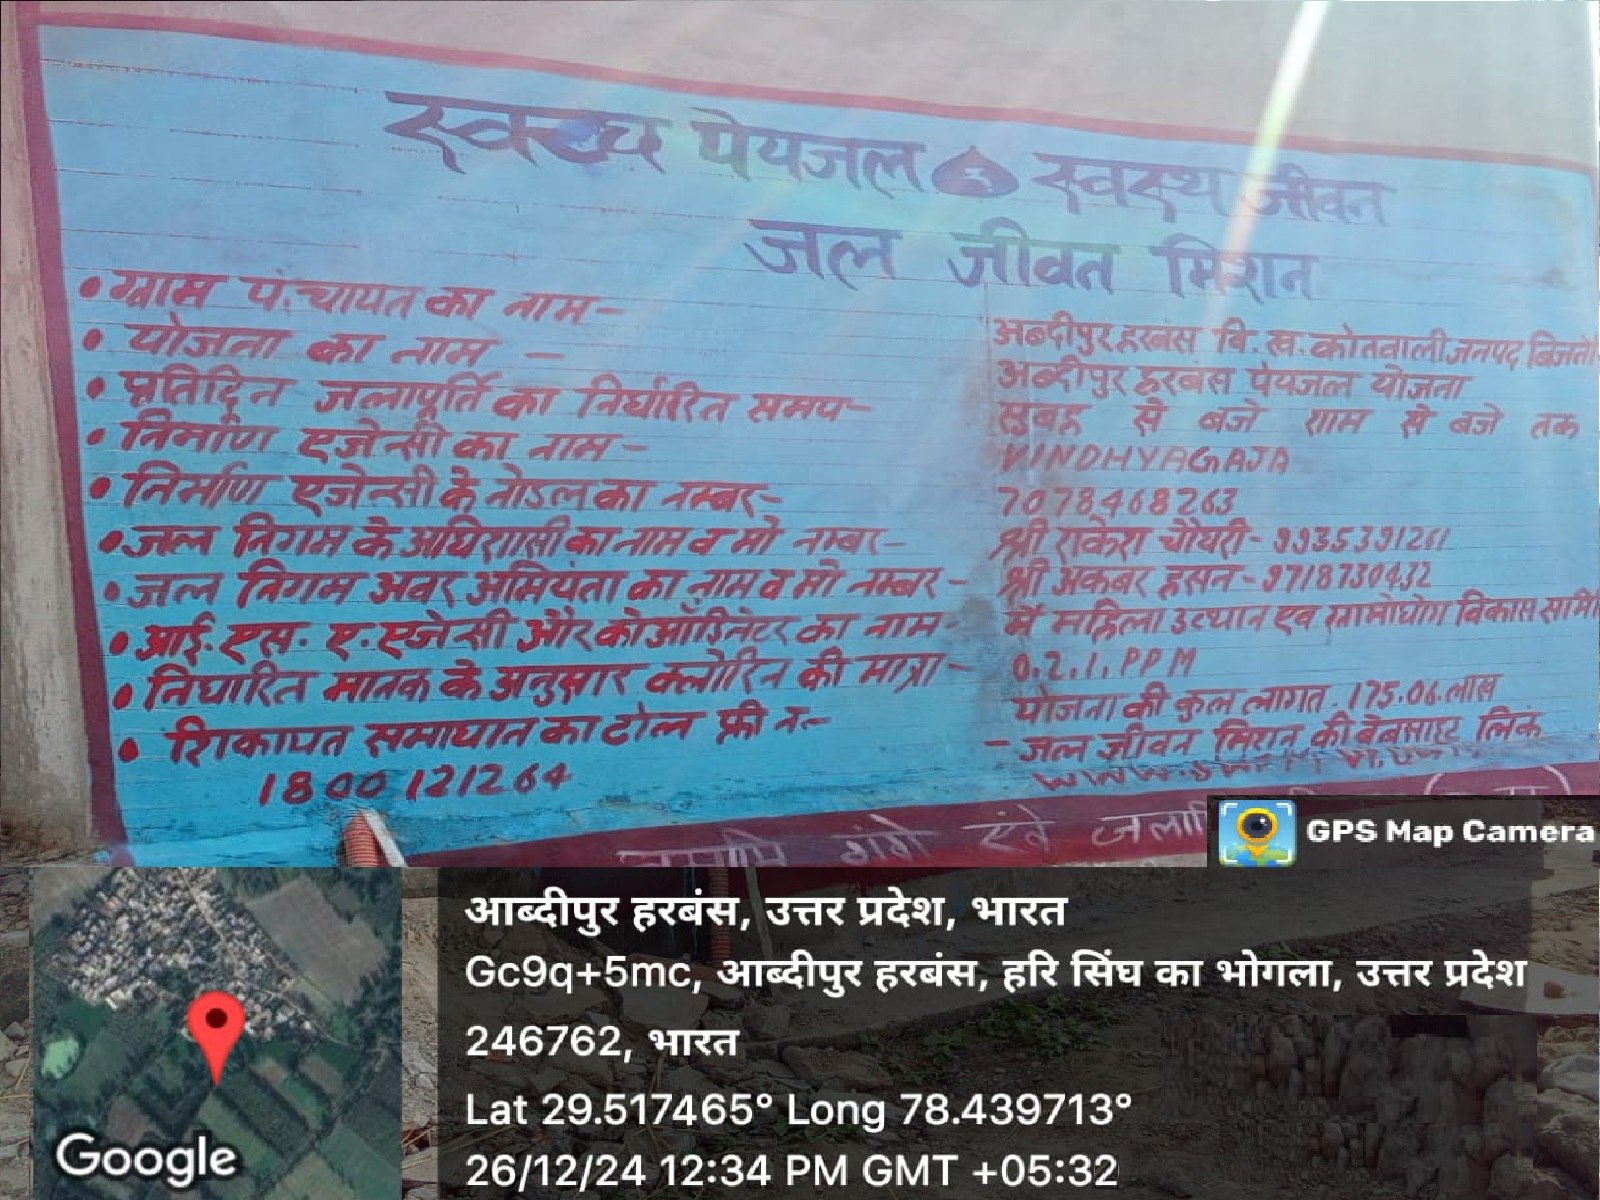 स्वच्छ पेयजल स्वस्थ जीवन
जल जीवन मिशन
• ग्राम पंचायत का नाम-
• योजना का नाम -
• प्रतिदिन जलापूर्ति का निर्धारित समय-
• निर्माण एजेन्सी का नाम-
• निर्माण एजेन्सी के नोडल का नम्बर-
• जल निगम के अधिशासी का नाम व मो नम्बर-
• जल निगम अवर अभियंता का नाम व मो नम्बर-
• आई.एस.ए.एजेंसी और कोऑर्डिनेटर का नाम-
• निर्धारित मानक के अनुसार क्लोरिन की मात्रा-
• शिकायत समाधान का टोल फ्री नं-
1800121264
अब्दीपुर हरबंस वि.ख.कोतवाली जनपद बिजनौ
अब्दीपुर हरबंस पेयजल योजना
सुबह से बजे शाम से बजे तक
VINDHYAGAJA
7078468263
श्री राकेश चौधरी-9935391261
श्री अकबर हसन-9718730432
मै महिला उत्थान एव ग्रामोद्योग विकास समि
0.2.1.PPM
योजना की कुल लागत.175.06.लाख
- जल जीवन मिशन की वेबसाइट लिंक
नमामि गंगे एवं
GPS Map Camera
आब्दीपुर हरबंस, उत्तर प्रदेश, भारत
Gc9q+5mc, आब्दीपुर हरबंस, हरि सिंघ का भोगला, उत्तर प्रदेश
246762, भारत
Lat 29.517465° Long 78.439713°
26/12/24 12:34 PM GMT +05:32
Google